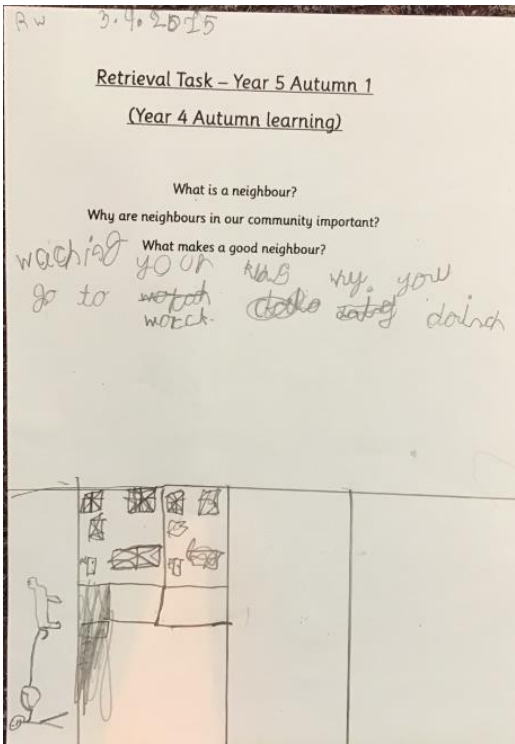 RW 3.9.2025
Retrieval Task – Year 5 Autumn 1
(Year 4 Autumn learning)
What is a neighbour?
Why are neighbours in our community important?
What makes a good neighbour?
waching your kids wy you
go to worck. doinch